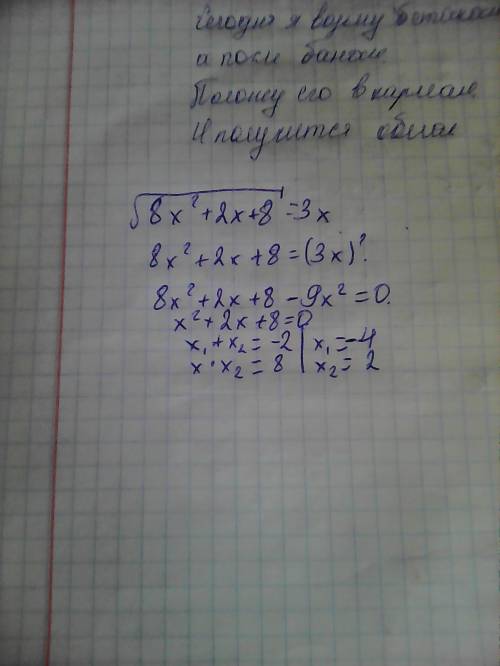 Сегодня я возьму
а после банан.
Положу его в карман.
И получится обман
√8x²+2x+8 = 3x
8x²+2x+8 = (3x)².
8x²+2x+8 - 9x² = 0.
x²+2x+8=0
x₁+x₂ = -2 | x₁ = -4
x·x₂ = 8 | x₂ = 2